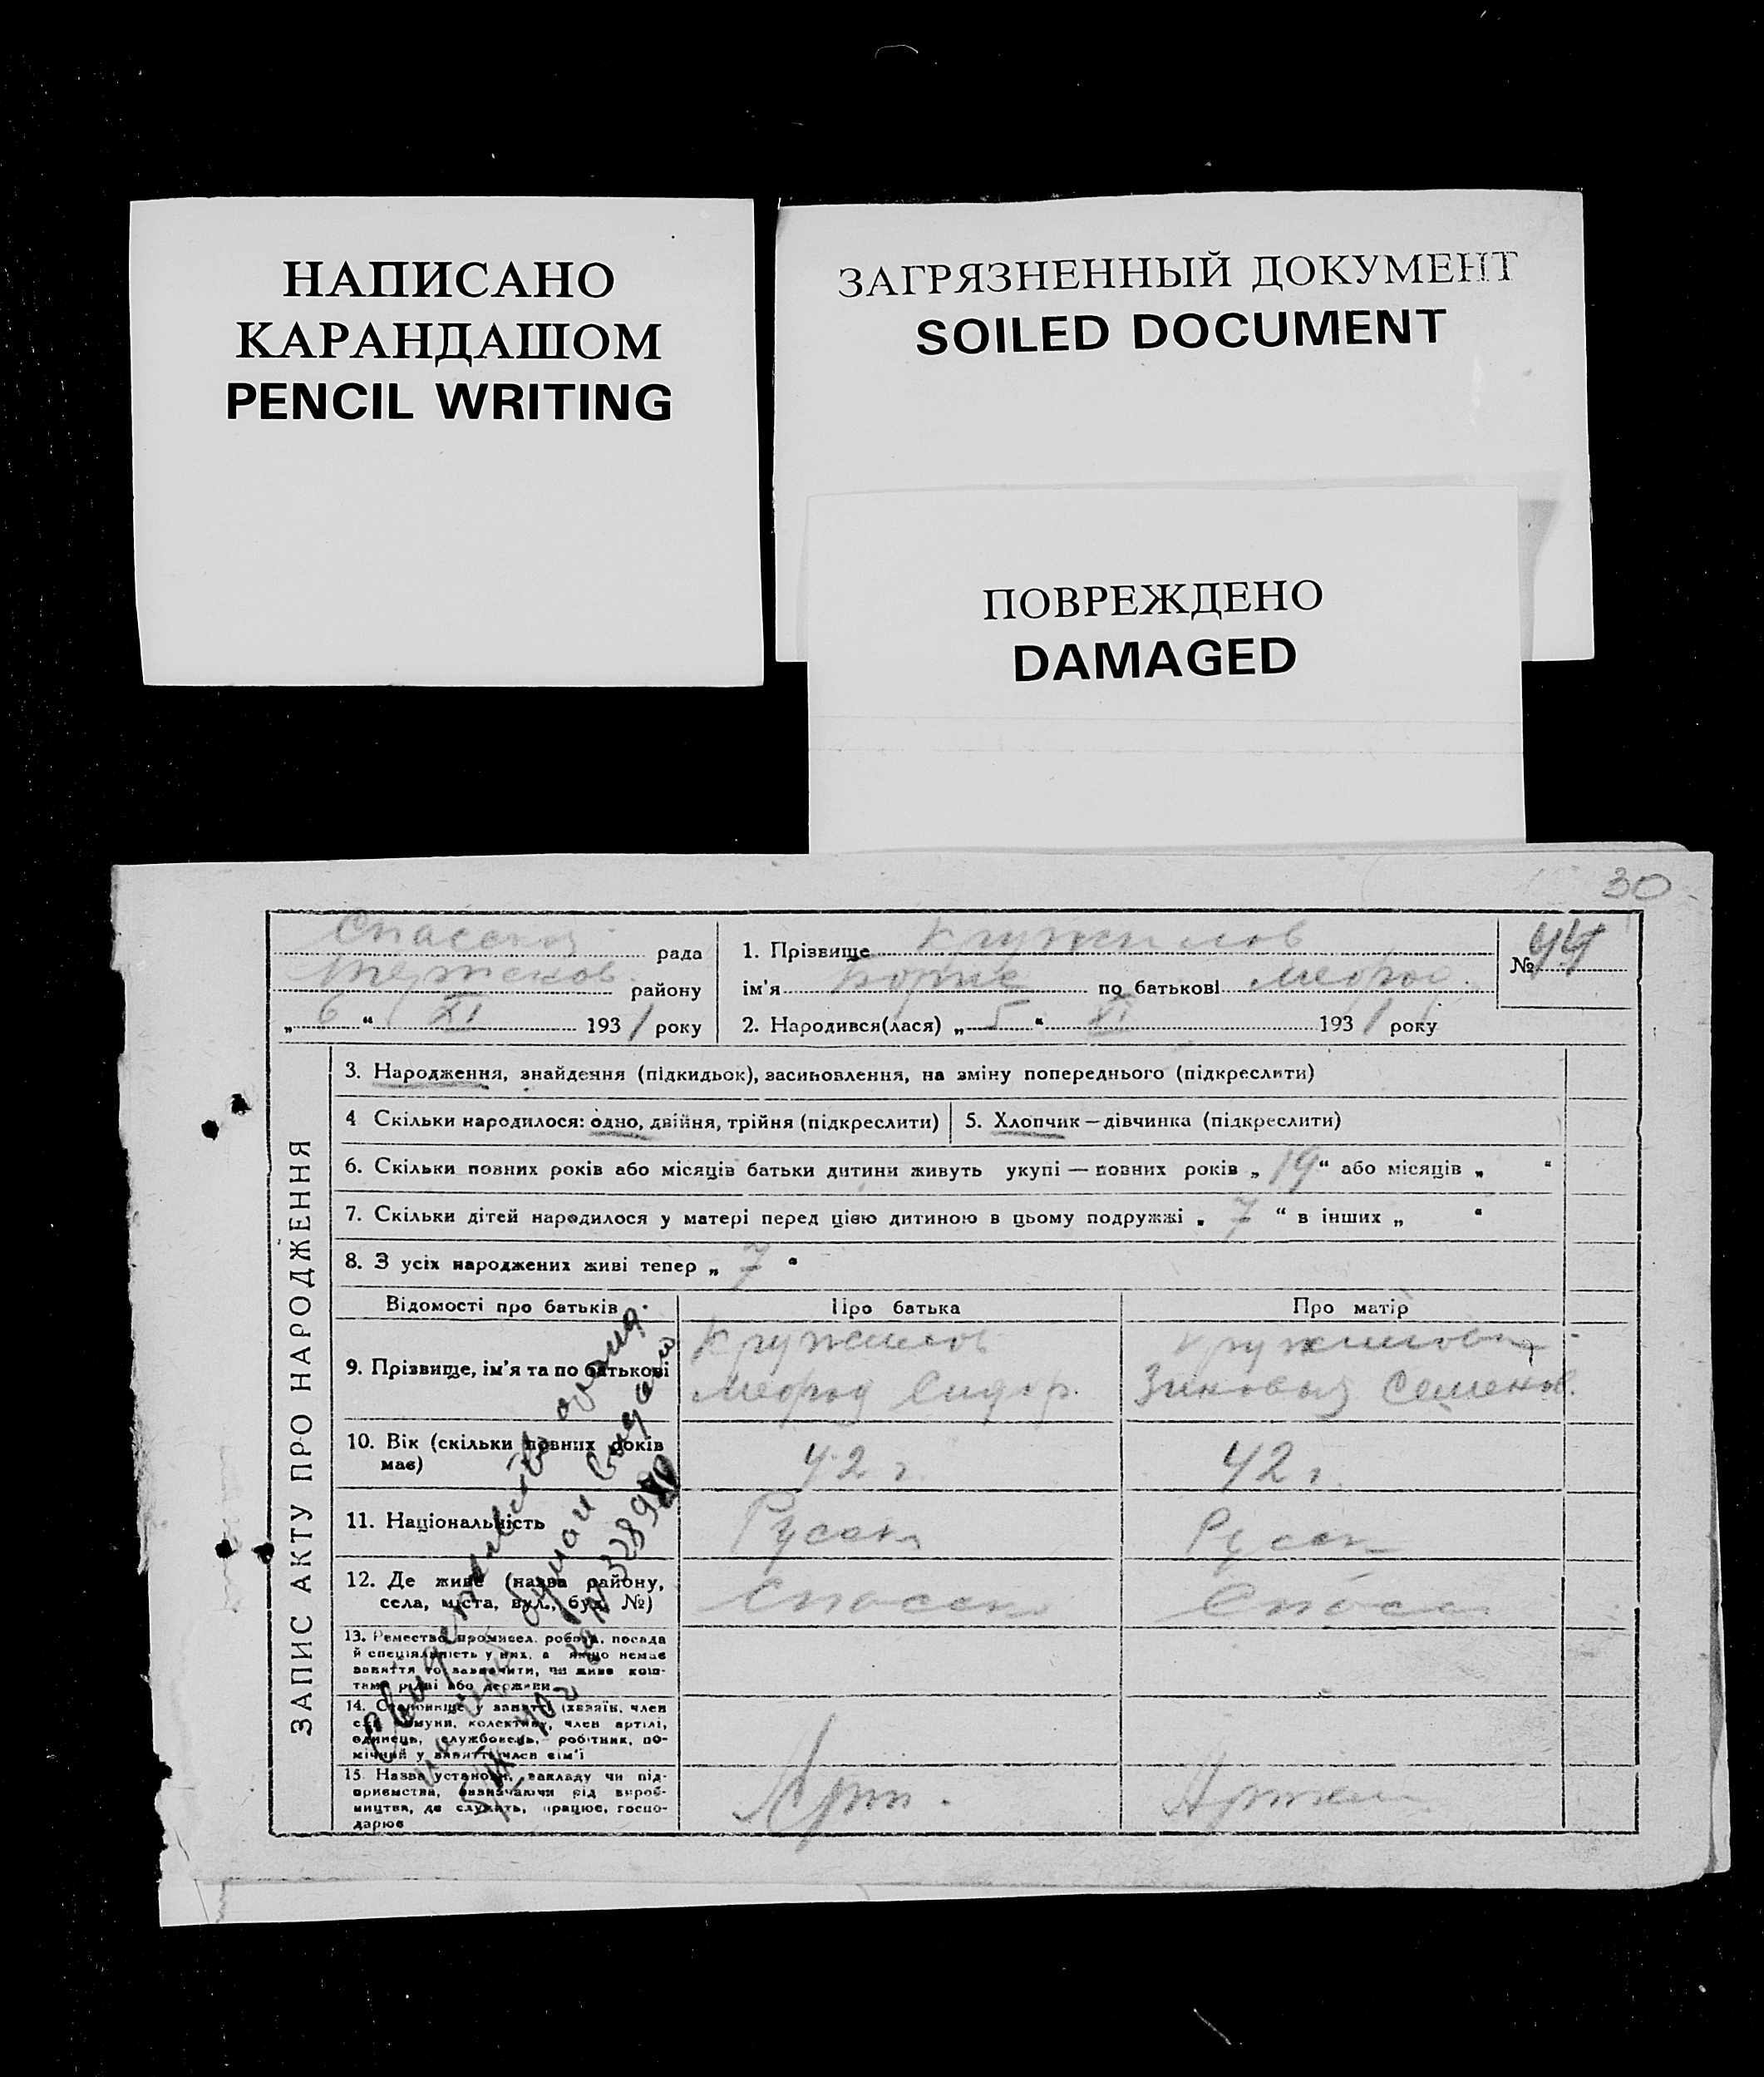 НАПИСАНО
КАРАНДАШОМ
PENCIL WRITING
ЗАГРЯЗНЕННЫЙ ДОКУМЕНТ
SOILED DOCUMENT
ПОВРЕЖДЕНО
DAMAGED
30
рада
району
„ 6 “ XI 1931 року
1. Прізвище Кружилов
ім'я по батькові
2. Народився(лася) „ 5 “ XI 1931 року
№ 44
ЗАПИС АКТУ ПРО НАРОДЖЕННЯ
3. Народження, знайдення (підкидьок), засиновлення, на зміну попереднього (підкреслити)
4 Скільки народилося: одно, двійня, трійня (підкреслити)
5. Хлопчик — дівчинка (підкреслити)
6. Скільки повних років або місяців батьки дитини живуть укупі — повних років „ 19 “ або місяців „ “
7. Скільки дітей народилося у матері перед цією дитиною в цьому подружжі „ 7 “ в інших „ “
8. З усіх народжених живі тепер „ 7 “
Відомості про батьків
Про батька
Про матір
9. Прізвище, ім'я та по батькові
Кружилов
Сидор.
Кружилова
Зиновья Семенов.
10. Вік (скільки повних років
має)
42 г.
42 г.
11. Національність
12. Де живе (назва району,
села, міста, вул., буд. №)
13. Ремество, промисел, робота, посада
й спеціяльність у них, а якщо немає
заняття то зазначити, чи живе кош-
тами рідні або держави
14. Становище у занятті (хазяїн, член
комуни, колективу, член артілі,
одинець, службовець, робітник, по-
мічний у занятті член сім'ї
15. Назва установи, закладу чи під-
приємства, визначаючи рід вироб-
ництва, де служить, працює, госпо-
дарює
Арт.
Артел